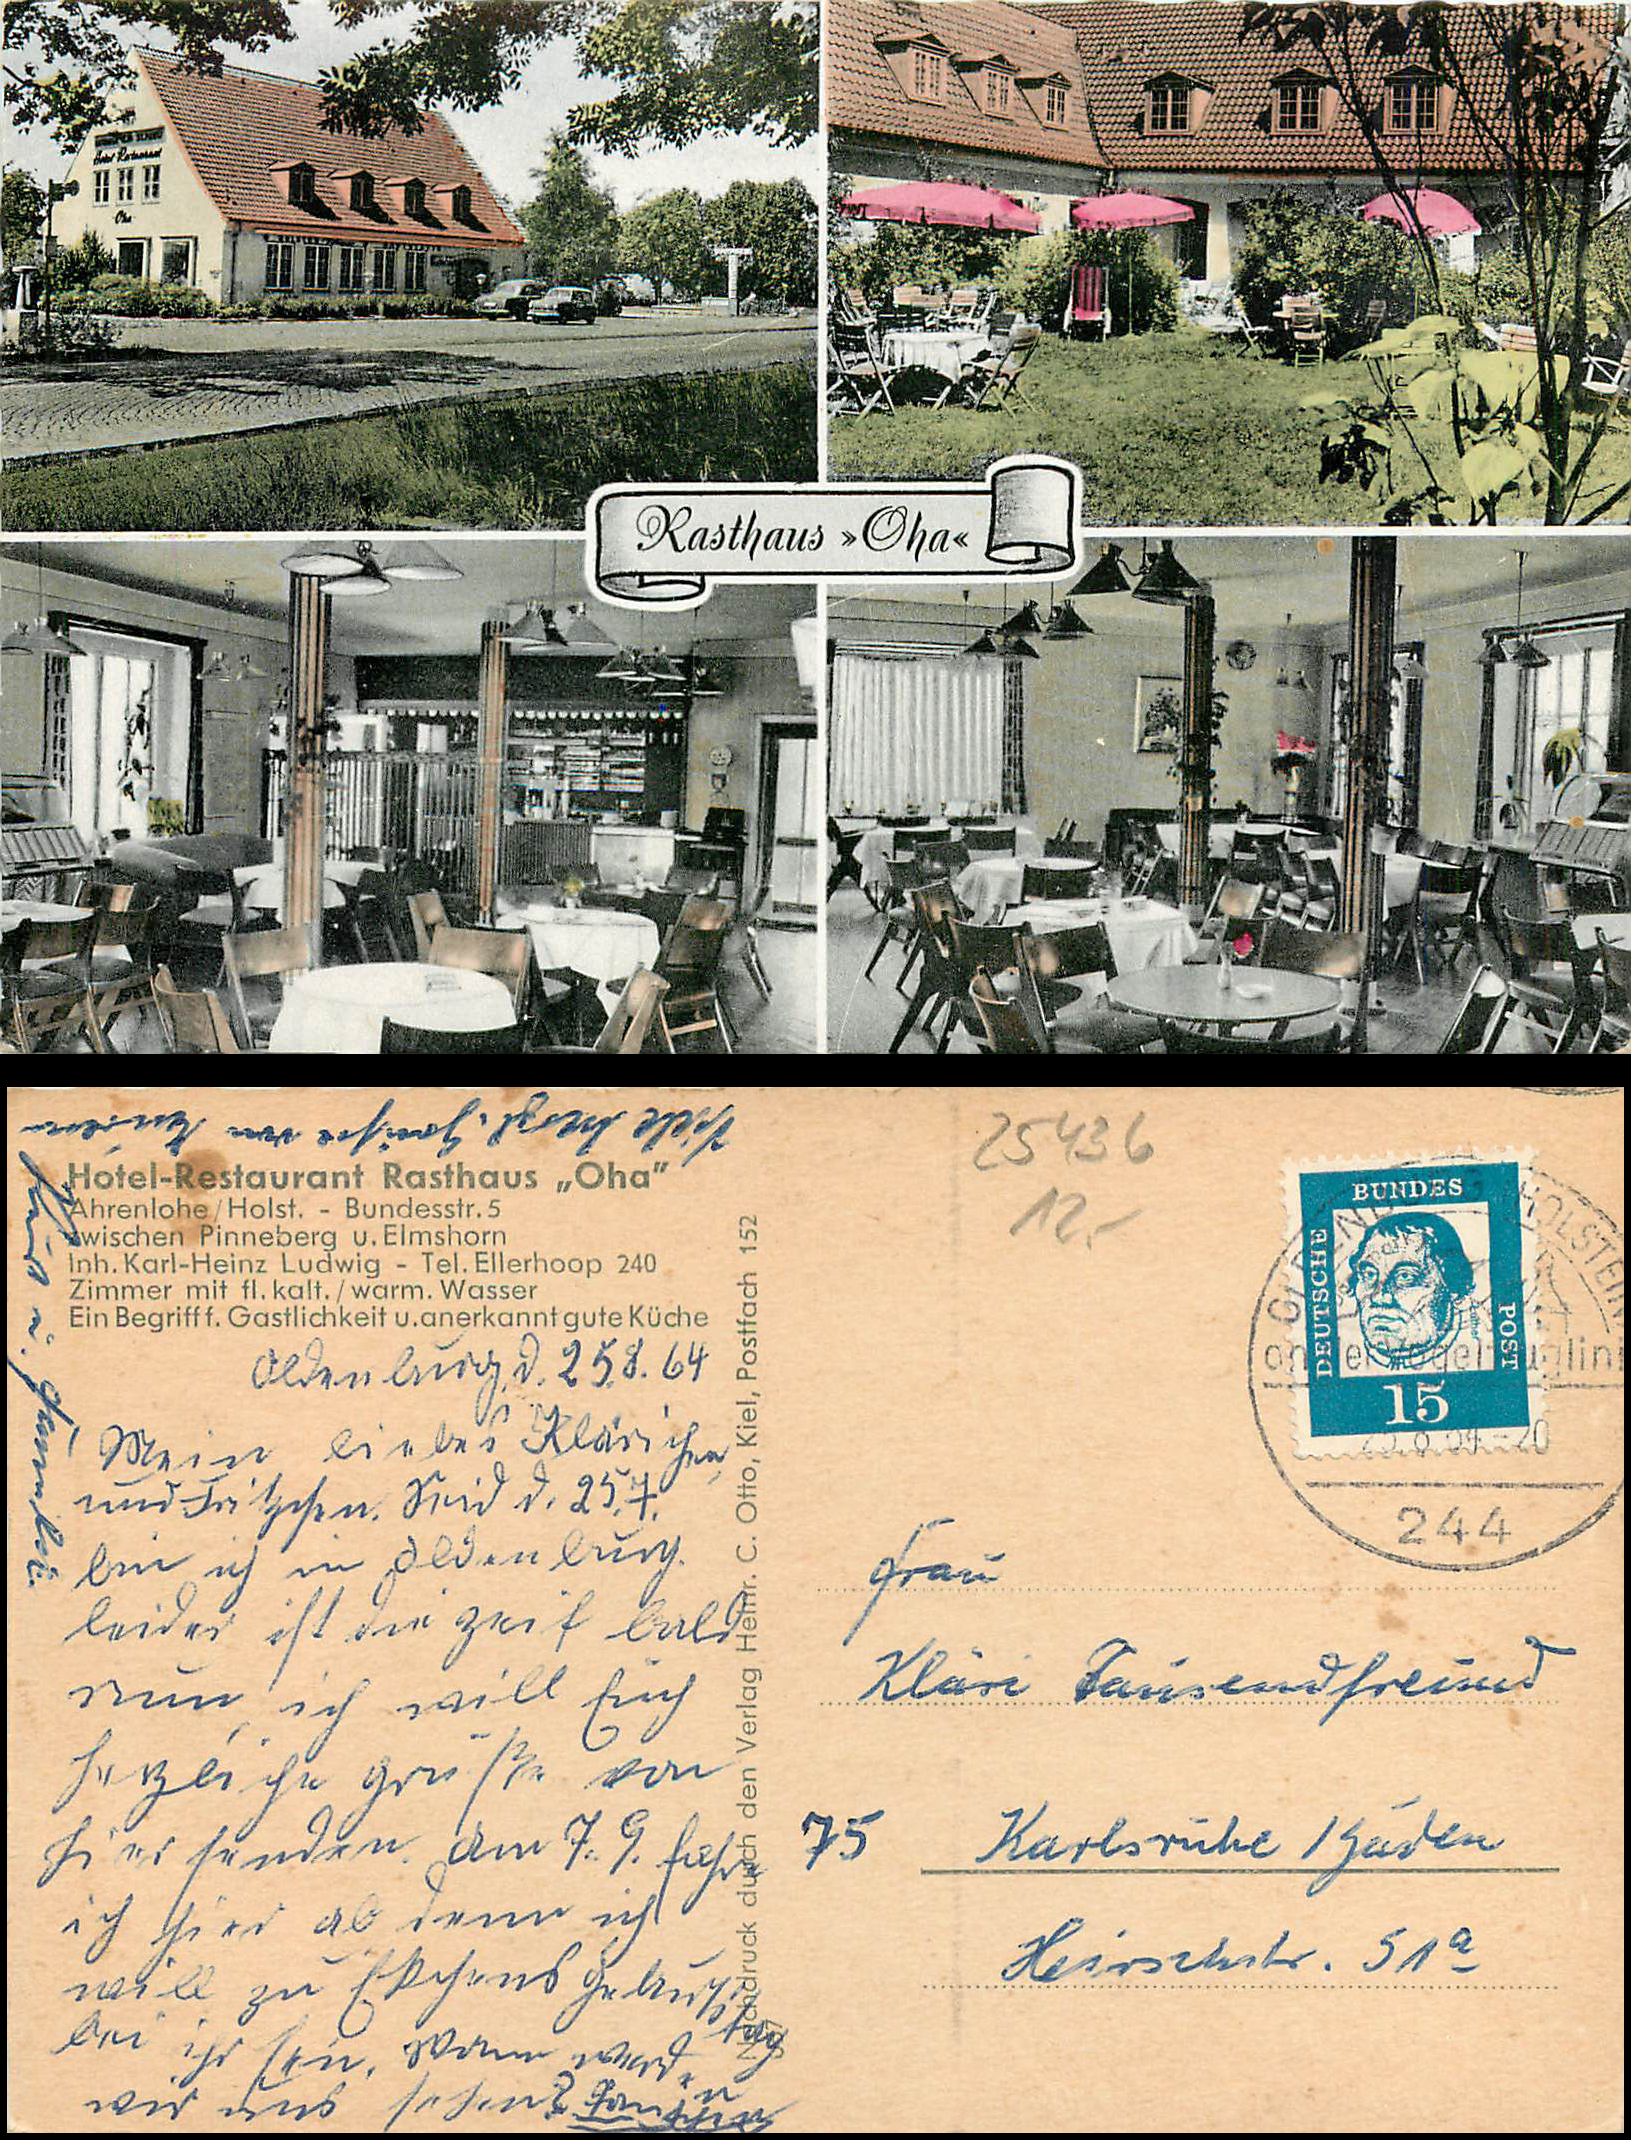 Hotel Restaurant
Oha
Rasthaus »Oha«
Hotel-Restaurant Rasthaus „Oha”
Ahrenlohe/Holst. - Bundesstr. 5
zwischen Pinneberg u. Elmshorn
Inh. Karl-Heinz Ludwig - Tel. Ellerhoop 240
Zimmer mit fl. kalt./warm. Wasser
Ein Begriff f. Gastlichkeit u. anerkannt gute Küche
Oldenburg, d. 25.8.64
Mein liebes Klärichen
und Fritzchen. Seid d. 25.7.
bin ich in Oldenburg.
leider ist die Zeit bald
rum, ich will Euch
herzliche Grüße von
hier senden. Am 7.9. fahre
ich hier ab denn ich
will zu Elkchens Geburtstag
bei ihr sein. Wann werden
wir uns sehen?
von
Nachdruck durch den Verlag Heinr. C. Otto, Kiel, Postfach 152
25436
12,-
DEUTSCHE
BUNDES
POST
15
HOLSTEIN
244
Frau
Kläre Tausendfreund
75 Karlsruhe / Baden
Hirschstr. 51a